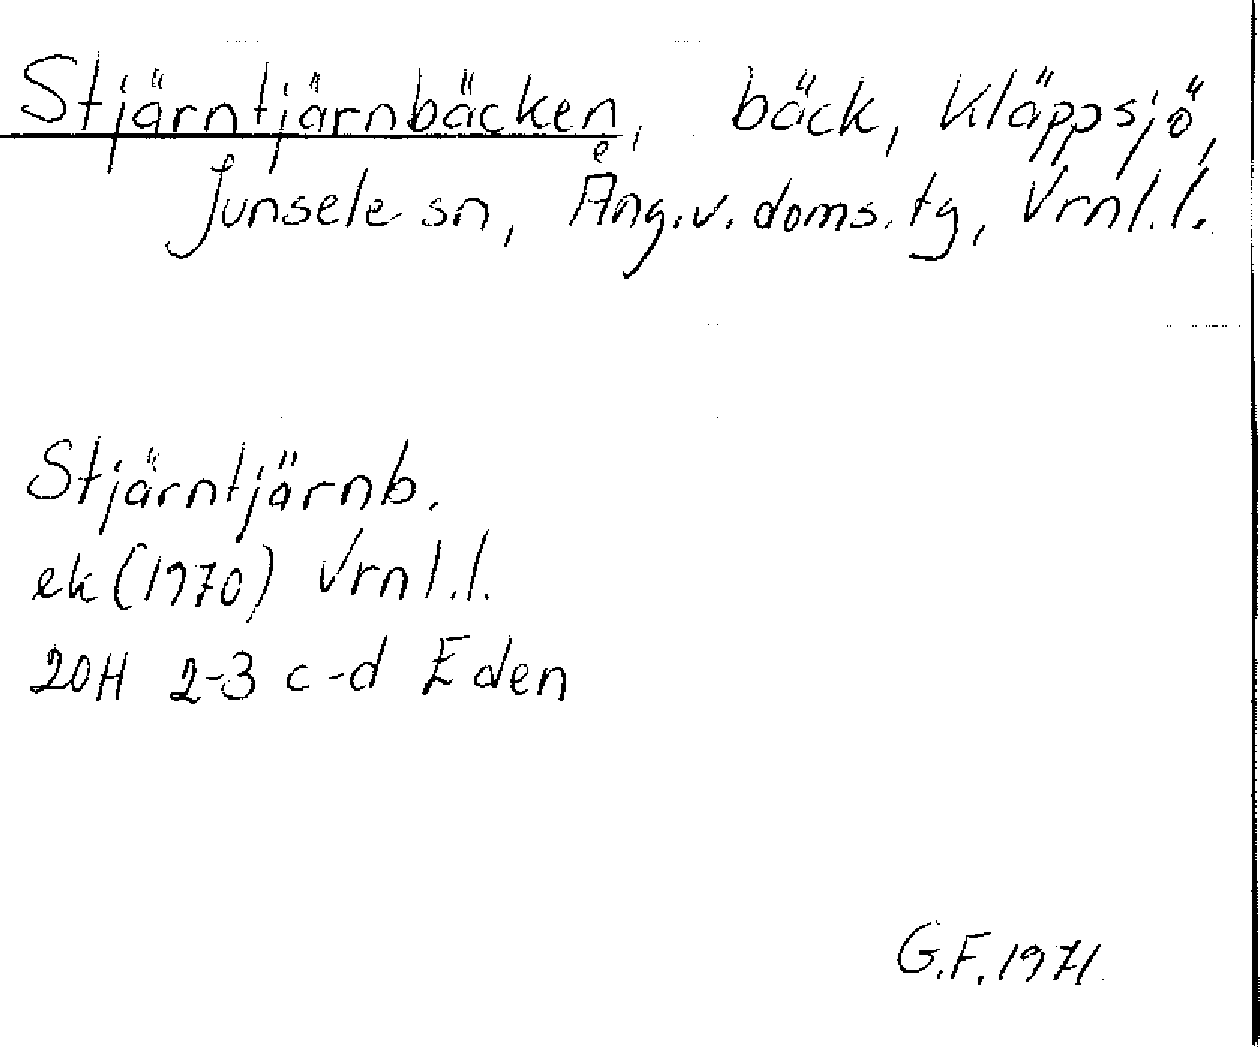 Stjärntjärnbäcken, bäck, Kläppsjö,
Junsele sn, Ång.v.doms.tg, Vrnl.l.
Stjärntjärnb.
ek (1970) Vrnl.l.
20H 2-3 c-d Eden
G.F. 1971